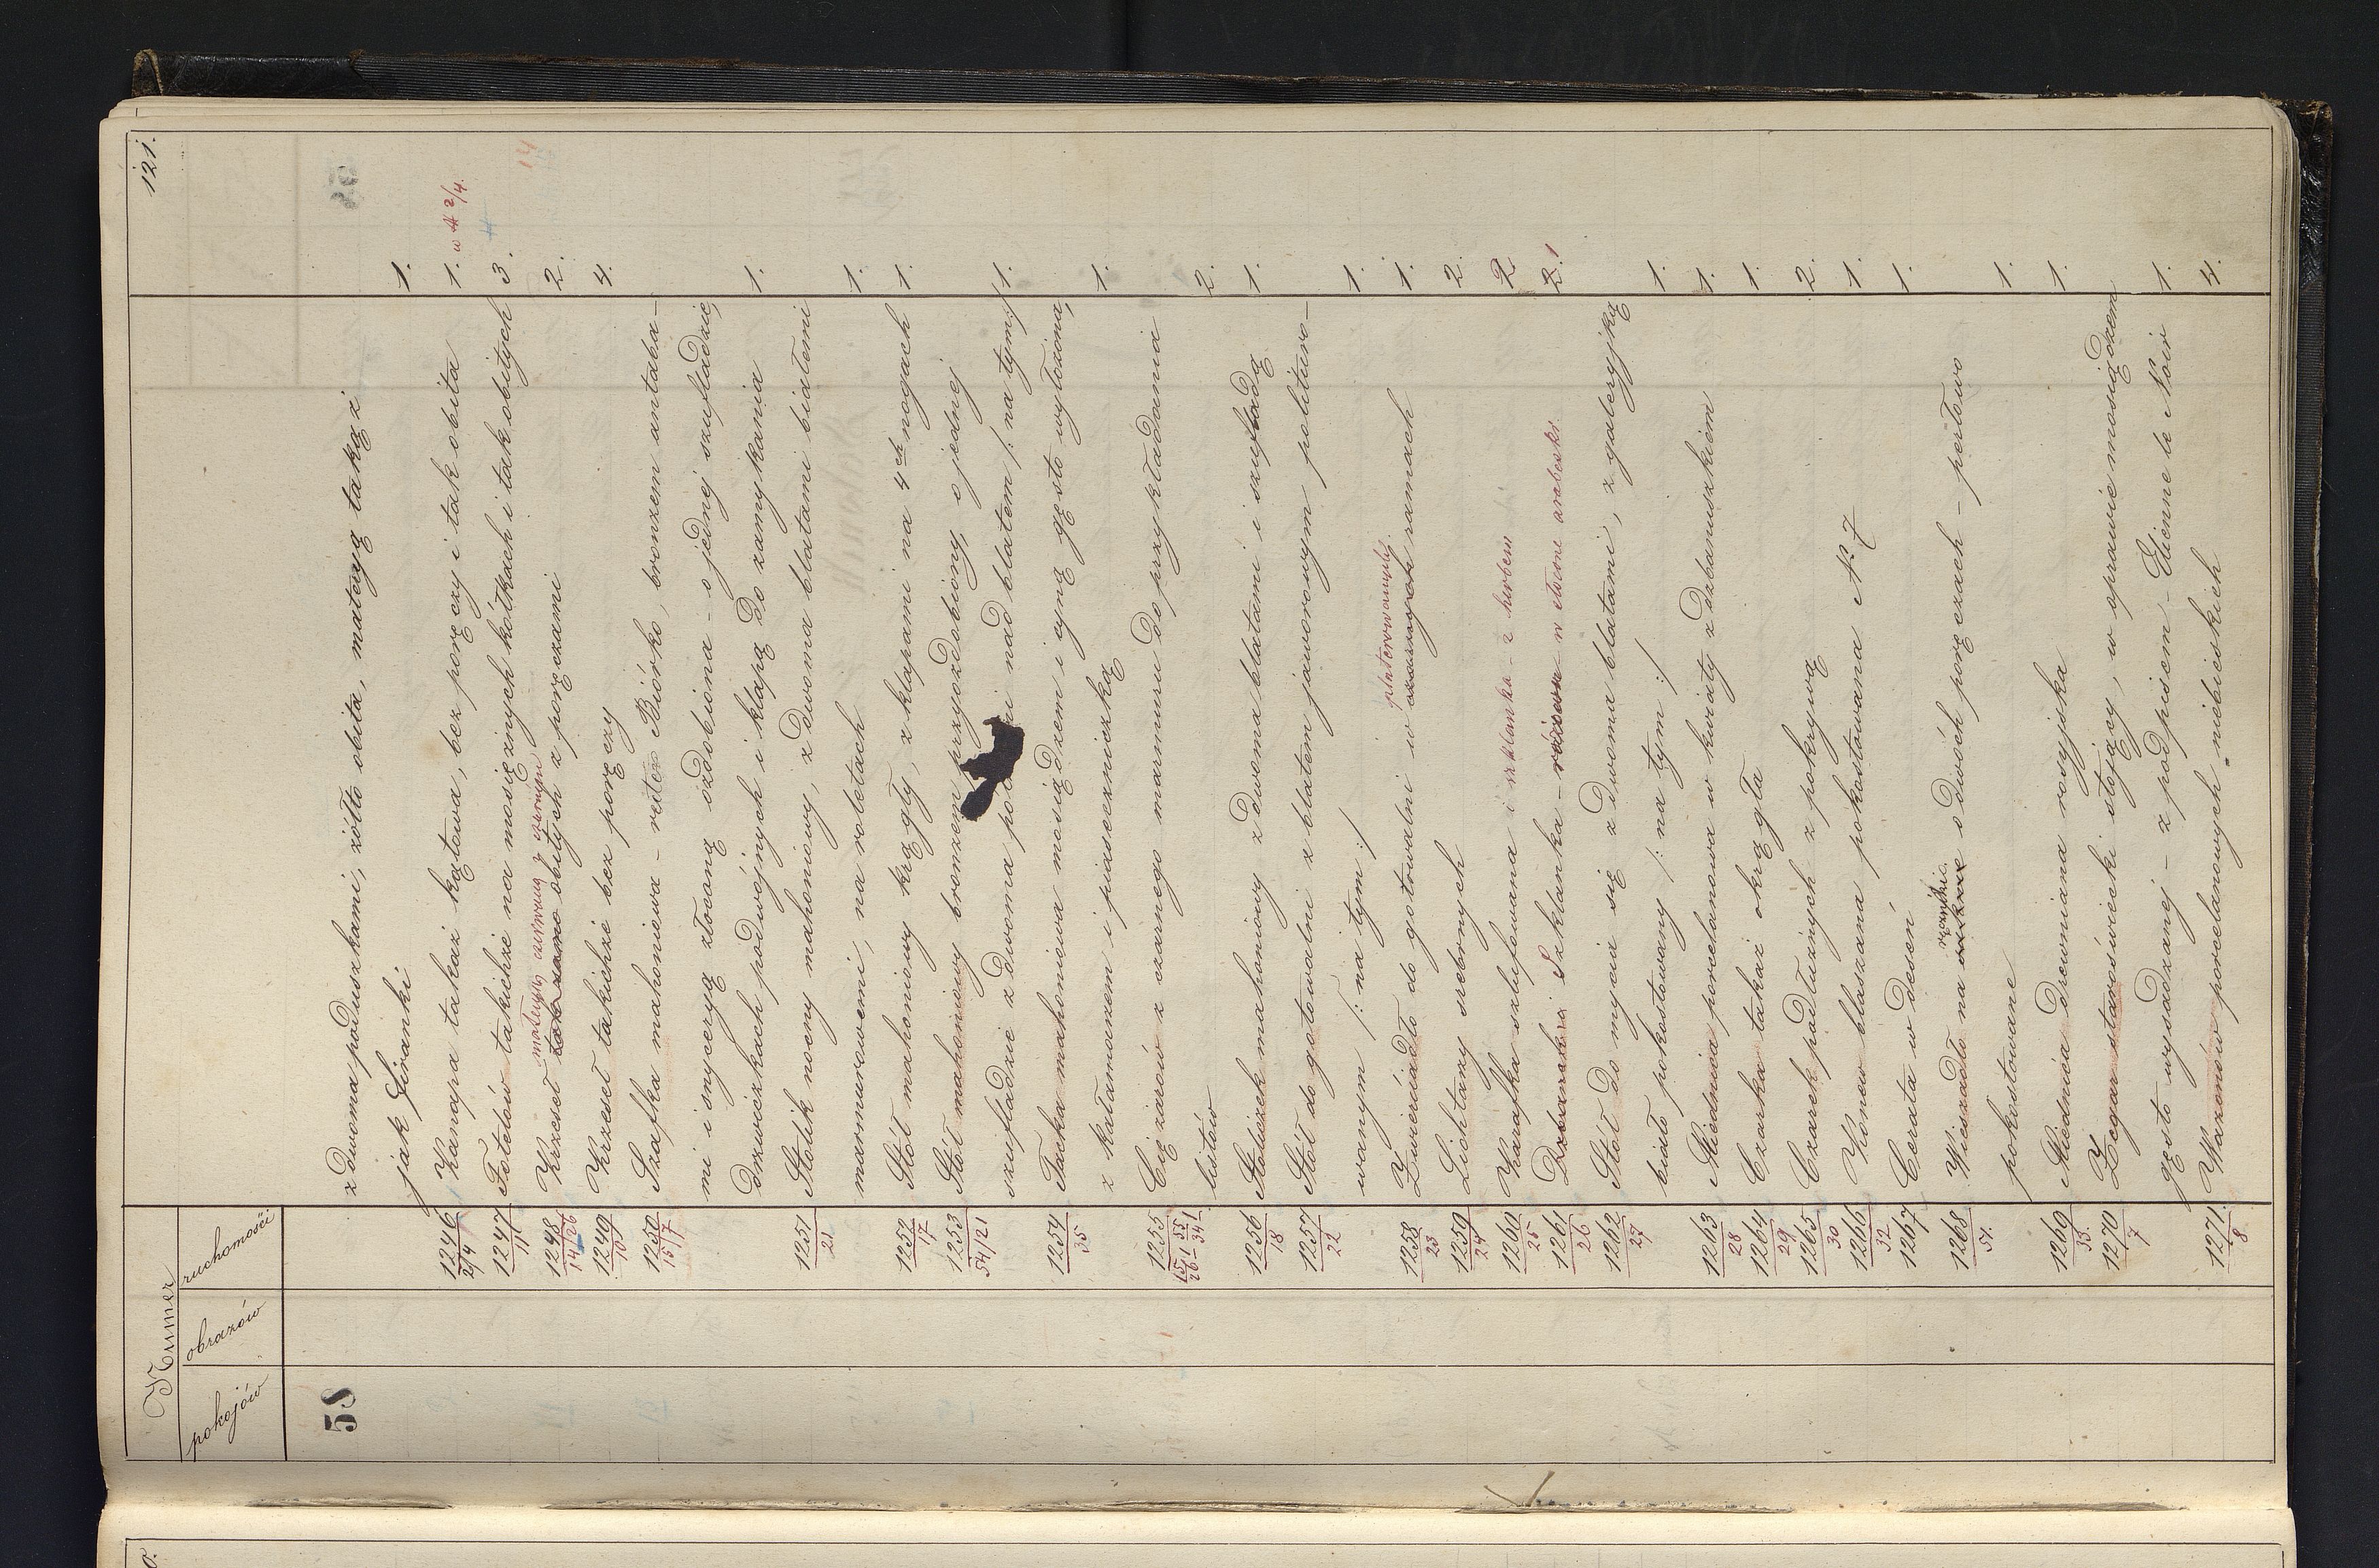 121.
Numer
pokojów obrazów ruchomości
58 z dwoma poduszkami, żółto obita, materyą takąż
jak Firanki 1.
1246 2/4 Kanapa takaż kątowa, bez poręczy i tak obita 1. w # 2/4.
1247 11 Fotelów takichże na mosiężnych kółkach i tak obitych 3. # 14
materyą czerwoną z czarnym
1248 14/26 Krzeseł tak samo obitych z poręczami 2.
1249 10 Krzeseł takichże bez poręczy 4.
1250 15/7 Szafka mahoniowa - Biórko, bronzem antaba-
mi i snyceryą złoconą ozdobiona - o jednej szufladzie,
drzwiczkach podwójnych i klapą do zamykania 1.
1251 21 Stolik nocny mahoniowy, z dwoma blatami białemi
marmurowemi, na roletach 1.
1252 17 Stół mahoniowy krągły, z klapami na 4ch nogach 1.
1253 54/21 Stół mahoniowy bronzem przyozdobiony, o jednej
szufladzie z dwoma nad blatem /: na tym :/ 1.
1254 35 Tacka mahoniowa mosiądzem i cyną gęsto wyłożona,
z kałamarzem i piaseczniczką 1.
1255 Ciężarów z czarnego marmuru do przykładania
listów 2.
1256 18 Stoliczek mahoniowy z dwoma blatami i szufladą 1.
1257 22 Stół do gotowalni z blatem jaworowym politúro-
wanym /: na tym :/ 1.
platerowanych.
1258 23 Zwierciadło do gotowalni w ramach 1.
1259 24 Lichtarzy srebrnych 2.
1260 25 Karafka szlifowana i szklanka - z herbem 2
1261 26 Dzbanek i Szklanka - różowa w złocone arabeski. 2. 1
1262 27 Stół do mycia się z dwoma blatami, z galeryjką
biało pokostowany /: na tym :/ 1.
1263 28 Miednica porcelanowa w kwiaty z dzbanuszkiem 1.
1264 29 Czarka takaż okrągła 1.
1265 30 Czarek podłużnych z pokrywą 2.
1266 32 Konew blaszana pokostowana No 7 1.
1267 Cerata w deseń 1.
ręczniki
1268 51. Wieszadło na o dwóch poręczach - perłowo
pokostowane 1.
1269 33. Miednica drewniana rosyjska 1.
1270 7 Zegar staroświecki stojący, w oprawie mosiądzem
gęsto wysadzanej - z podpisem - Etienne le Noir 1.
1271. 8. Wazonów porcelanowych - niebieskich 4.